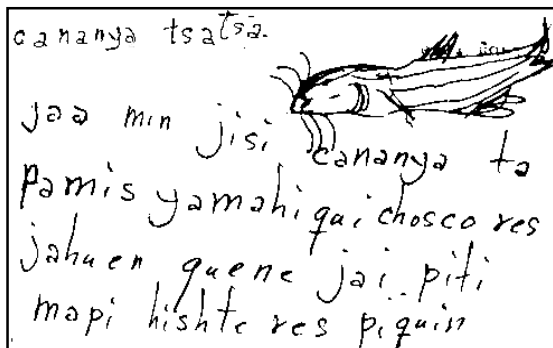 cananya tsatsa.
jaa min jisi cananya ta
pamis yamahi qui chosco res
jahuen quene jai piti
mapi hishte res piquin